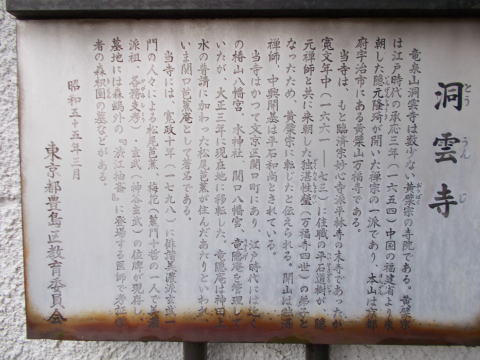 洞雲寺
とう うん じ
竜泉山洞雲寺は数少ない黄檗宗の寺院である。黄檗宗
は江戸時代の承応三年(一六五四)中国の福建省より来
朝した隠元隆琦が開いた禅宗の一派であり、本山は京都
府宇治市にある黄檗山万福寺である。
当寺は、もと臨済宗妙心寺派平林寺の末寺であったが
寛文年中(一六六一―七三)に住職の平石道樹が、隠
元禅師と共に来朝した独湛性瑩(万福寺四世)の弟子と
なったため、黄檗宗に転じたと伝えられる。開山は独湛
禅師、中興開基は平石和尚とされている。
当寺はかつて文京区関口町にあり、江戸時代には近く
の椿山八幡宮、水神社、関口八幡宮、竜隠庵を管理して
いたが、大正三年に現在地に移転した。竜隠庵は神田上
水の普請に加わった松尾芭蕉が住んだあたりといわれ、
いま関口芭蕉庵として著名である。
当寺には、寛政十年(一七九八)に俳諧美濃派玄武一
門の人々による松尾芭蕉、梅花(蕉門十哲の一人で美濃
派祖・各務支考)・玄武(神谷玄武)の位牌が現存し、
墓地には森鷗外の『渋江抽斎』に登場する医師で考証学
者の森枳園の墓などがある。
昭和五十五年三月
東京都豊島区教育委員会